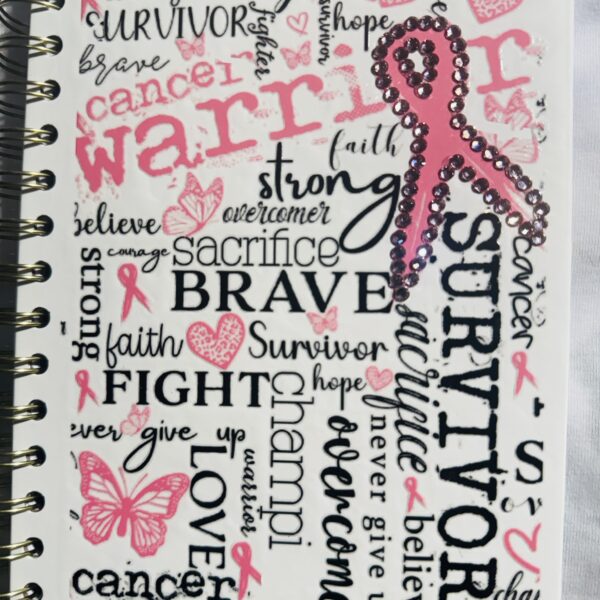 SURVIVOR
fighter
survivor
hope
brave
cancer
warrior
faith
strong
believe
overcomer
courage
sacrifice
BRAVE
strong
faith
Survivor
FIGHT
hope
ever give up
LOVE
warrior
champi
overcom
never give u
sacrifice
believ
SURVIVOR
cancer
S
cha
cancer